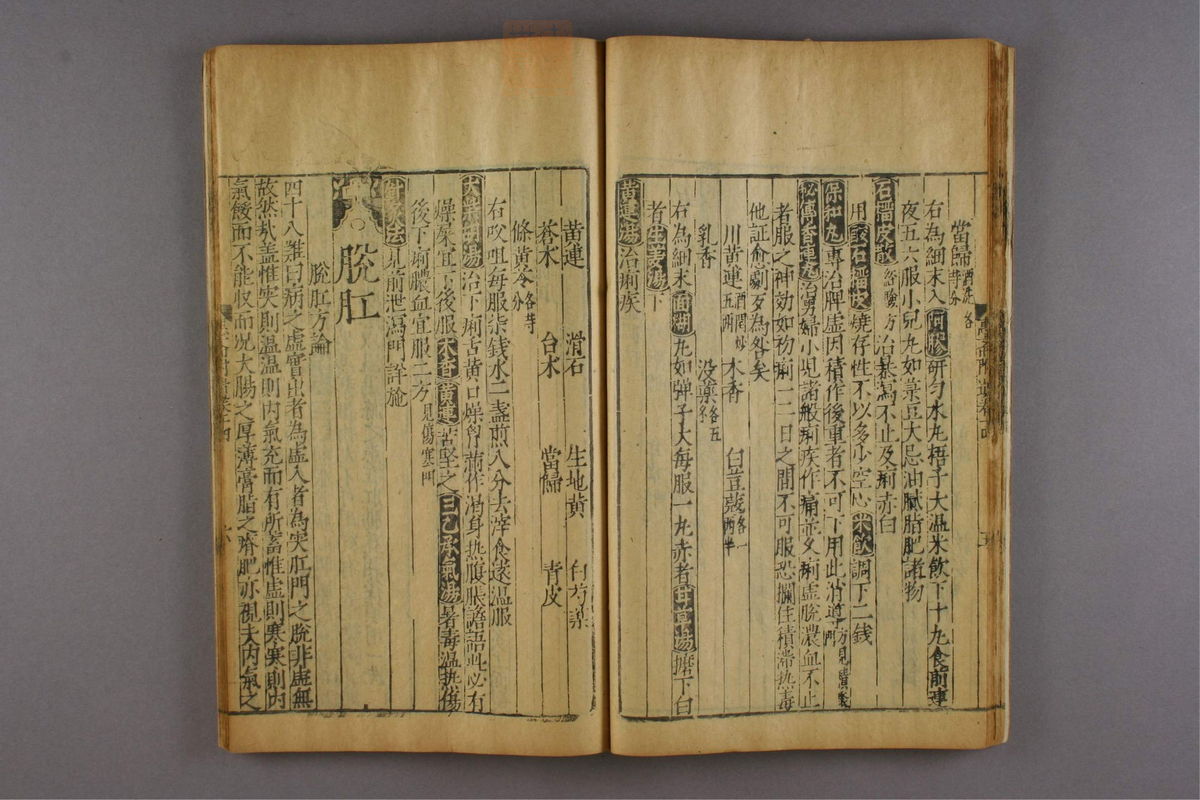 當歸
右為細末入阿膠研勻水丸梧子大溫米飲下十九食前連
夜五六服小兒丸如菉豆大忌油膩脂肥諸物
石榴皮散 經驗方 治暴瀉不止及痢赤白
用酸石榴皮燒存性不以多少空心米飲調下二錢
保和丸專治脾虛因積作後重者不可下用此消導
秘傳香連丸男婦小児諸般痢疾作痛並久痢虛脫濃血不止
者服之神効如初痢一二日之間不可服恐攔住積滯热毒
他証愈劇歹為咎矣
川黄連 木香 白荳蔻各一兩半
乳香 没藥各五
右為細末 丸如弹子大每服一丸赤者甘草湯擂下白
者生姜湯下
黄連湯治痢疾
黄連 滑石 生地黄 白芍藥
蒼术 白术 當歸 青皮
條黄芩各等分
右㕮咀每服柒錢水二盞煎八分去滓食遠温服
大柴胡湯治下痢舌黄口燥胷滿作渴身热腹脹譫語此必有
燥屎宜下後服木香黄連苦堅之三乙承氣湯暑毒温热傷
後下痢膿血宜服二方見傷寒門
針灸法見前泄瀉門詳施
脫肛
脫肛方論
四十八難曰病之虛實出者為虛入者為实肛門之脫非虛無
故然矣盖惟实則温温則内氣充而有所蓄惟虛則寒寒則内
氣餒而不能收而况大腸之厚薄膏脂之瘠肥亦視夫内氣之